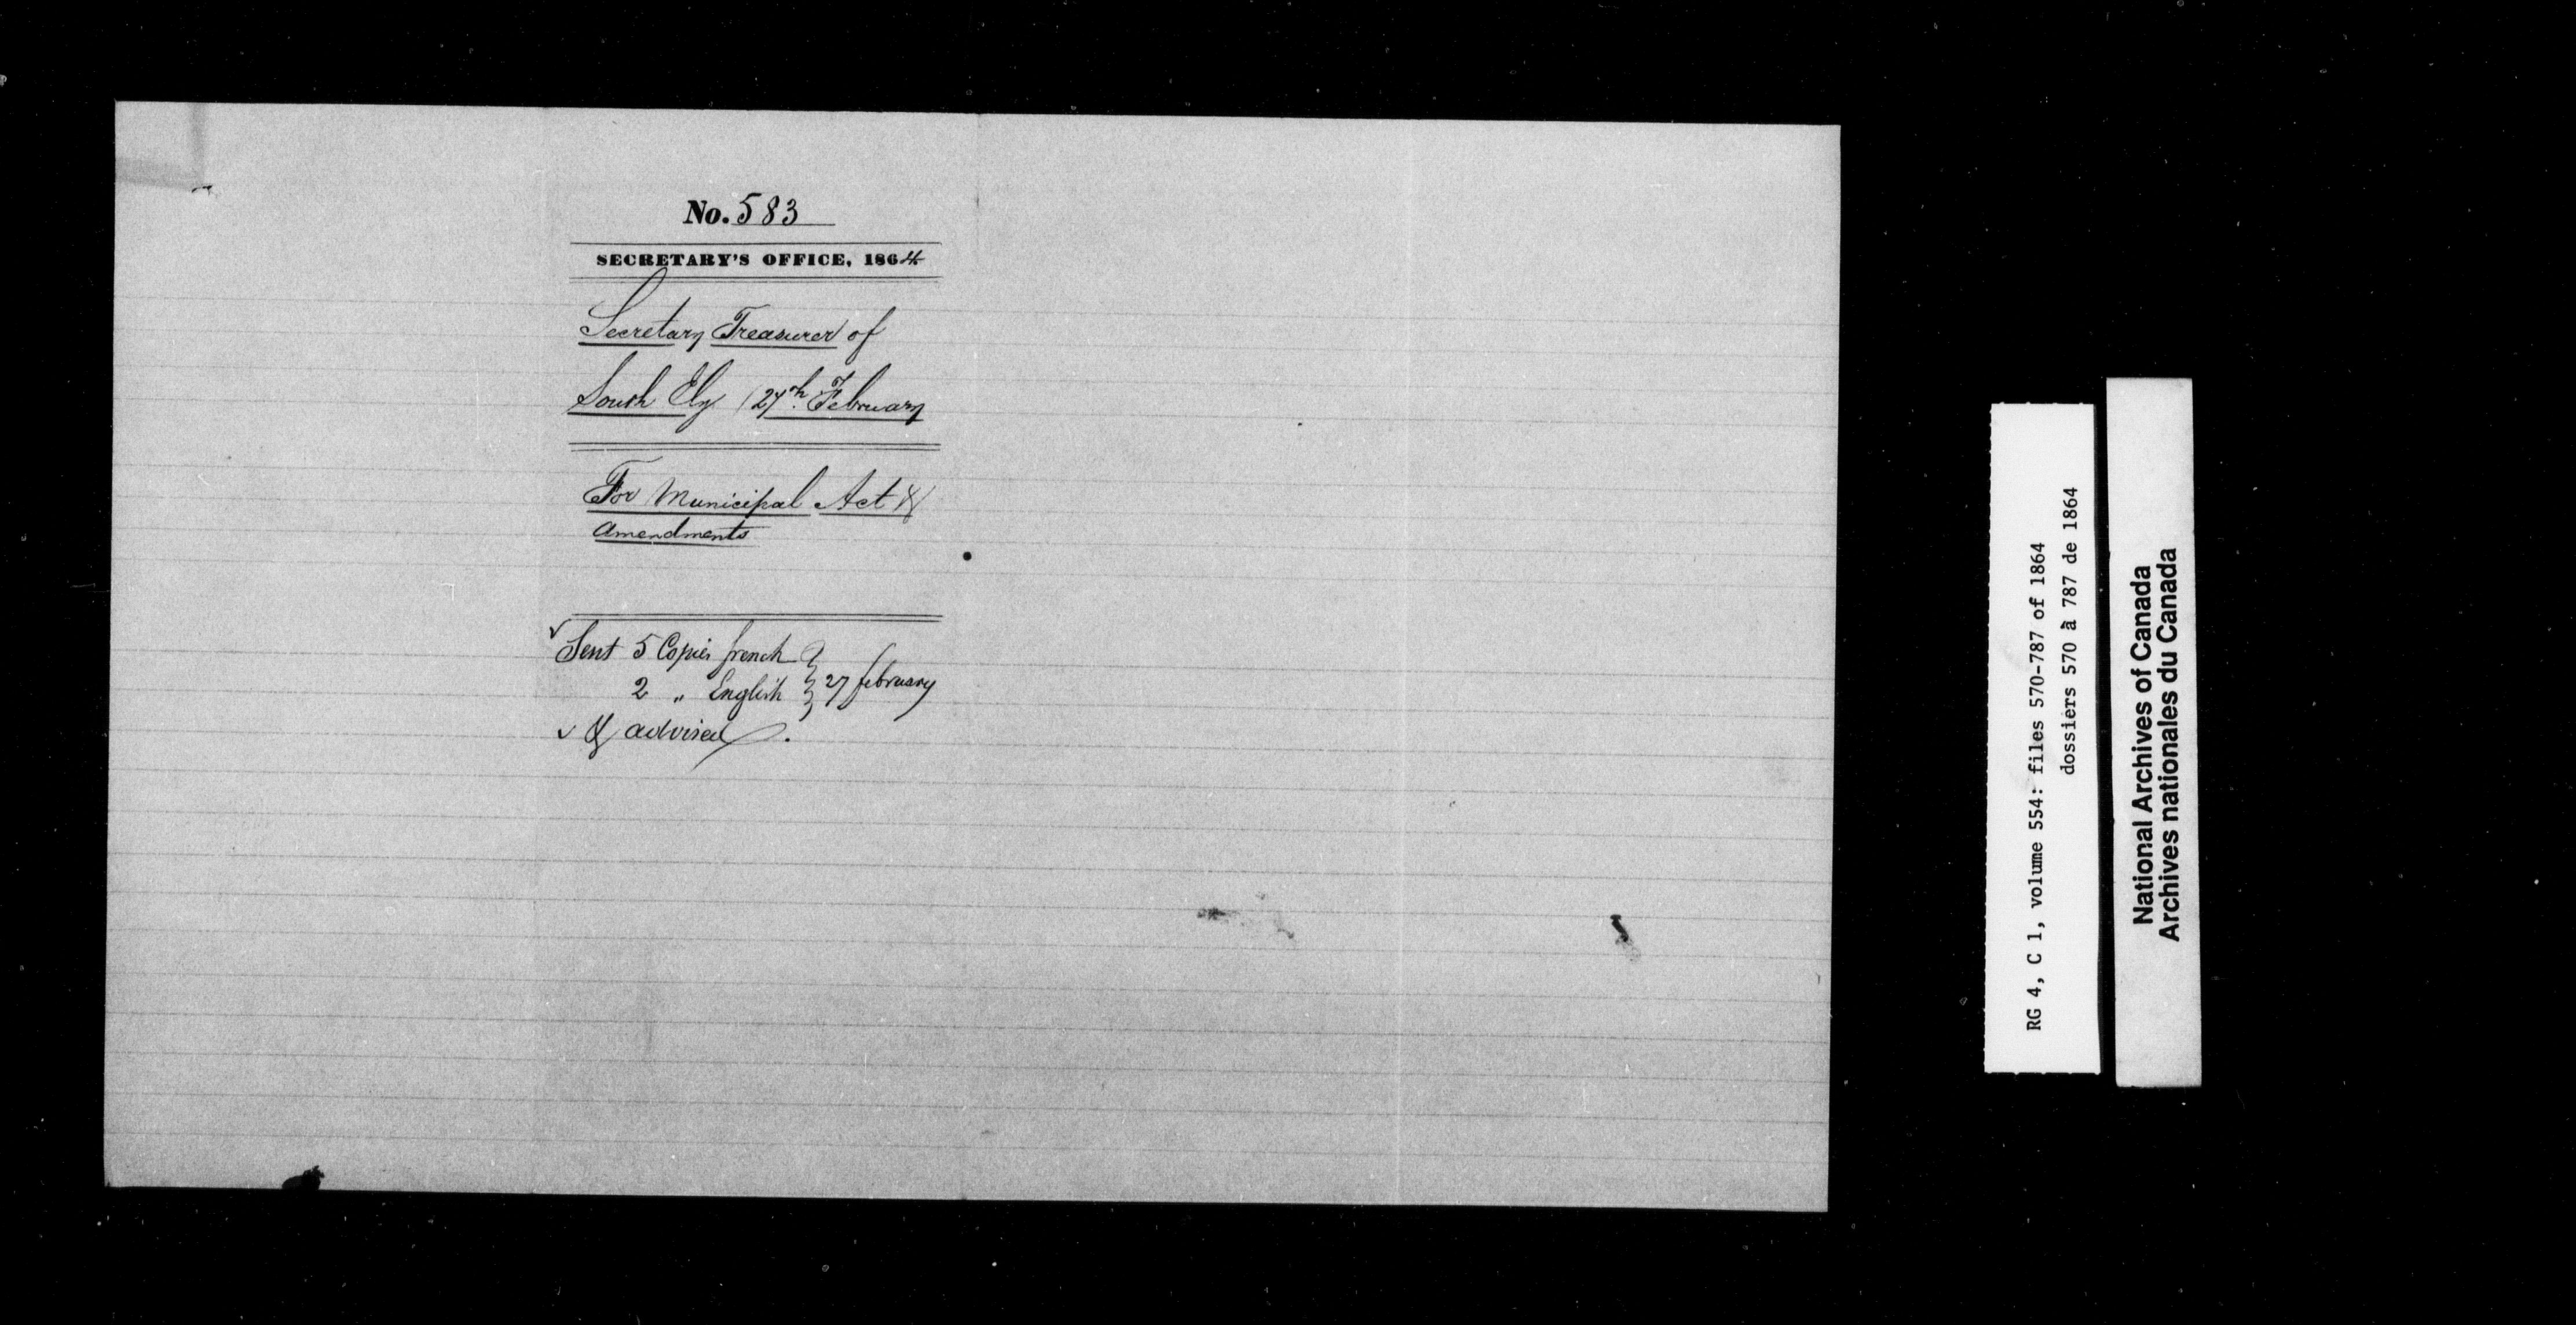 No. 583
SECRETARY'S OFFICE, 1864
Secretary Treasurer of
South Ely (27th February
For Municipal Act &
Amendments
Sent 5 Copies french
2 „ English } 27 february
& advised.
RG 4, C 1, volume 554: files 570-787 of 1864
dossiers 570 à 787 de 1864
National Archives of Canada
Archives nationales du Canada